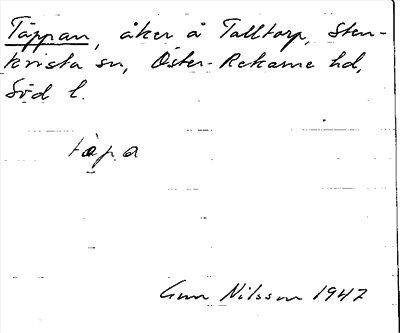 Täppan, åker å Talltorp, Sten-
kvista sn, Öster-Rekarne hd,
Söd l.
tápa
Gun Nilsson 1947